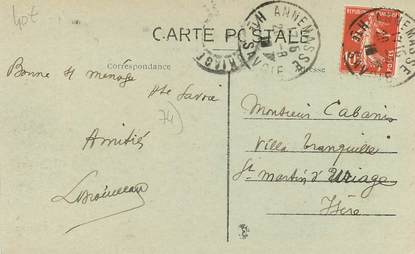 40t
CARTE POSTALE
Correspondance
Adresse
ANNEMASSE
Hte SAVOIE
Bonne st menage
Hte Savoie
74)
Amitiés
Monsieur Cabanis
Villa Tranquille
St Martin d'Uriage
Isère